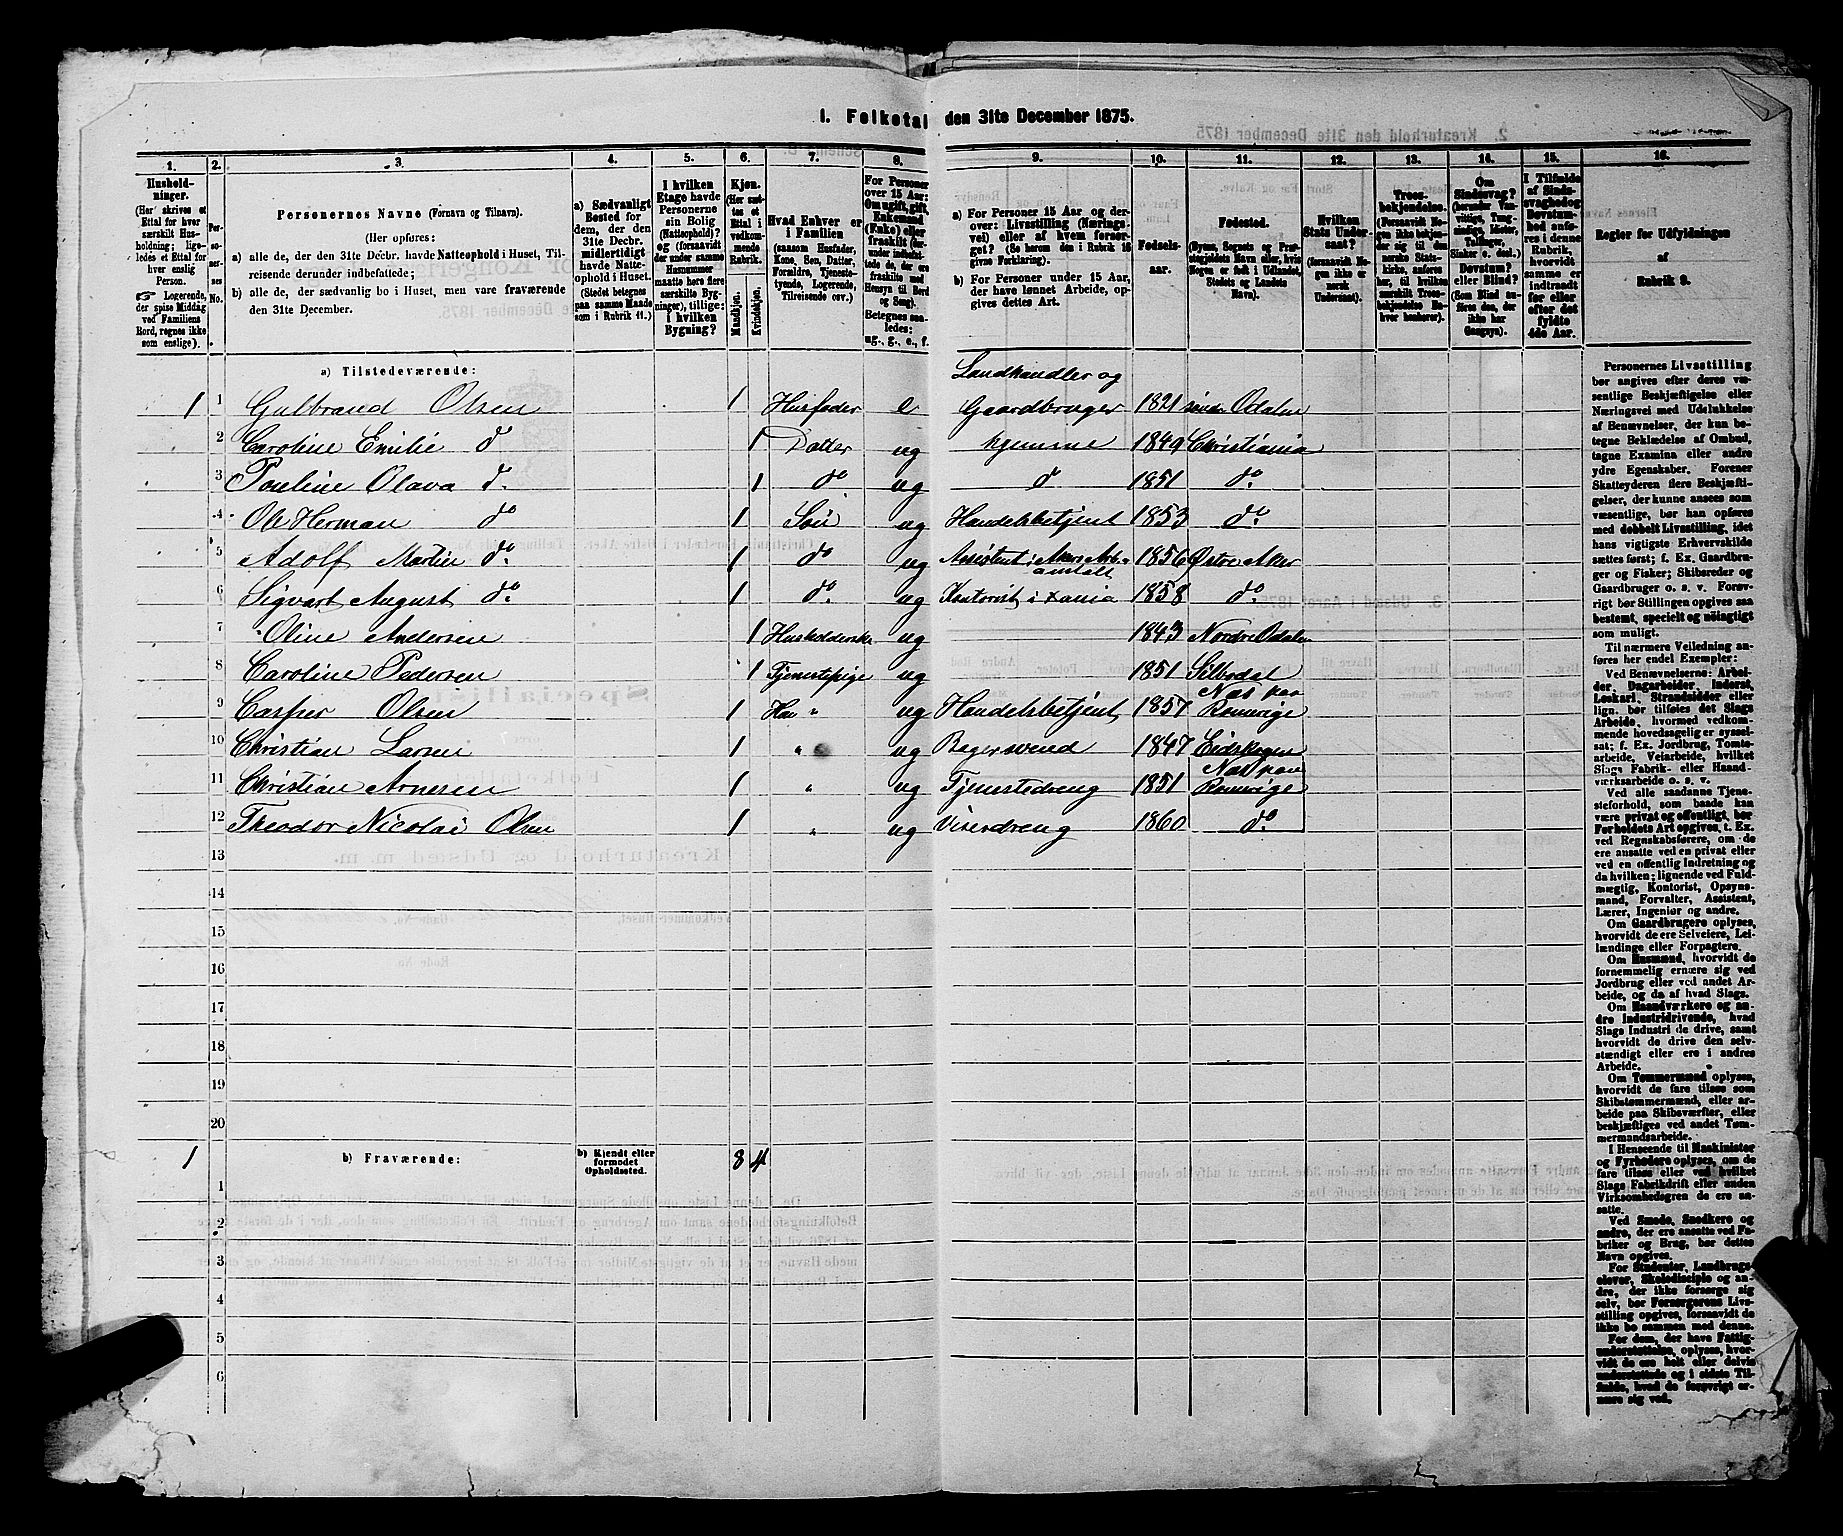 1. Folketal den 31te December 1875.
1. 2. 3. 4. 5. 6. 7. 8. 9. 10. 11. 12. 13. 14. 15. 16.
Hushold-
ninger.
(Her skrives et
Ettal for hver
særskilt Hus-
holdning; lige-
ledes et Ettal for
hver enslig
Person.
☞ Logerende,
der spise Middag
ved Familiens
Bord, regnes ikke
som enslige).
Per-
so-
ner-
nes
No.
Personernes Navne (Fornavn og Tilnavn).
(Her opføres:
a) alle de, der den 31te Decbr. havde Natteophold i Huset, Til-
reisende derunder indbefattede;
b) alle de, der sædvanlig bo i Huset, men vare fraværende
den 31te December.
a) Sædvanligt
Bosted for
dem, der den
31te Decbr.
midlertidigt
havde Natte-
ophold i Huset.
(Stedet betegnes
paa samme Maade
som i Rubrik 11.)
I hvilken
Etage havde
Personerne
sin Bolig
(Natteophold)?
og (forsaavidt
der under samme
Husnummer
maatte høre flere
særskilte Byg-
ninger), tillige:
i hvilken
Bygning?
Kjøn.
(Her sæt-
tes et
Ettal i
vedkom-
mende
Rubrik.
Mandkjøn.
Kvindekjøn.
Hvad Enhver er
i Familien
(saasom Husfader,
Kone, Søn, Datter,
Forældre, Tjeneste-
tyende, Logerende,
Tilreisende osv.)
For Personer
over 15 Aar:
Om ugift, gift,
Enkemand
(Enke) eller
fraskilt (der-
under indbefat-
tede de, der ere
fraskilte med
Hensyn til Bord
og Seng).
Betegnes saa-
ledes:
ug., g., e., f.
a) For Personer 15 Aar og der-
over: Livsstilling (Nærings-
vei) eller af hvem forsør-
get? (Se herom den i Rubrik 16
givne Forklaring).
b) For Personer under 15 Aar,
der have lønnet Arbeide, op-
gives dettes Art.
Fødsels-
aar.
Fødested.
(Byens, Sognets og Præ-
stegjeldets Navn eller, hvis
Nogen er født i Udlandet,
Stedets og Landets
Navn).
Hvilken
Stats Under-
saat?
(forsaavidt No-
gen ikke er
norsk
Undersaat).
Troes-
bekjendelse.
(Personer, som
ikke bekjen-
der sig til
den norske
Statskirke, anføres
her, til hvilken
særskilt Troes-
bekjendelse En-
hver henhører).
Om
Sindssvag?
(herunder Van-
vittige, Tung-
sindige, Idioter,
Tullinger,
Sinker o. desl.)
Døvstum?
eller Blind?
(Som Blind an-
føres den, der
ikke har
Gangsyn).
I Tilfælde
af Sinds-
svaghed og
Døvstum-
hed anfø-
res i denne
Rubrik,
hvorvidt
samme er
indtraadt
før eller
efter det
fyldte
4de Aar.
Regler for Udfyldningen
af
Rubrik 9.
a) Tilstedeværende:
1 1 Gulbrand Olsen 1 Husfader e Landhandler og Gaardbruger 1821 søndr Odalen
2 Caroline Emilie do 1 Datter ug hjemme 1849 Christiania
3 Pouline Olava do. 1 do ug d 1851 do.
4 Ole Herman do 1 Søn ug Handelsbetjent 1853 do.
5 Adolf Martin do. 1 do ug Assistent i Akers Arb. anstalt 1856 Østre Aker
6 Sigvart August do. 1 do. ug Kontorist i Xania 1858 do.
7 Oline Andersen 1 Husholderske ug 1843 Nordre Odalen
8 Caroline Pedersen 1 Tjenestepige ug 1851 Silbodal
9 Casper Olsen 1 ug Handelsbetjent 1857 Næs paa Romerige
10 Christian Larsen 1 " ug Bagersvend 1847 Eidskogen
11 Christian Arnesen 1 " ug Tjenestedreng 1851 Næs paa Romerige
12 Theodor Nicolai Olsen 1 " ug Viserdreng 1860 do.
13
14
15
16
17
18
19
20
1 b) Fraværende: b) Kjendt eller
formodet
Opholdssted. 8 4
1
2
3
4
5
6
Personernes Livsstilling
bør angives efter deres væ-
sentlige Beskjæftigelse eller
Næringsvei med Udelukkelse
af Benævnelser, der kun be-
tegne Beklædelse af Ombud,
tagne Examina eller andre
ydre Egenskaber. Forener
Skatteyderen flere Beskjæfti-
gelser, der kunne ansees som
væsentlige, bør han opføres
med dobbelt Livsstilling, idet
hans vigtigste Erhvervskilde
sættes først; f. Ex. Gaardbru-
ger og Fisker; Skibsreder og
Gaardbruger o. s. v. Forøv-
rigt bør Stillingen opgives saa
bestemt, specielt og nøiagtigt
som muligt.
Til nærmere Veiledning an-
føres her endel Exempler:
Ved Benævnelserne: Arbei-
der, Dagarbeider, Inderst,
Løskarl, Strandsidder eller
lign. bør tilføies det Slags
Arbeide, hvormed vedkom-
mende hovedsagelig er syssel-
sat; f. Ex. Jordbrug, Tomte-
arbeide, Veiarbeide, hvilket
Slags Fabrik- eller Haand-
værksarbeide o. s. v.
Ved alle saadanne Tjene-
steforhold, som baade kan
være privat og offentligt, bør
Forholdets Art opgives, t. Ex.
ved Regnskabsførere, om de
ere ansatte ved en privat eller
ved en offentlig Indretning og
da hvilken; lignende ved Fuld-
mægtig, Kontorist, Opsyns-
mand, Forvalter, Assistent,
Lærer, Ingeniør og andre.
Om Gaardbrugere oplyses,
hvorvidt de ere Selveiere, Lei-
lændinge eller Forpagtere.
Om Husmænd, hvorvidt de
fornemmelig ernære sig ved
Jordbrug eller ved andet Ar-
beide, og da af hvad Slags.
Om Haandværkere og an-
dre Industridrivende, hvad
Slags Industri de drive, samt
hvorvidt de drive den selv-
stændigt eller ere i andres
Arbeide.
Om Tømmermænd oplyses,
hvorvidt de fare tilsøs som
Skibstømmermænd, eller ar-
beide paa Skibsværfter, eller
beskjæftiges ved andet Tøm-
mermandsarbeide.
I Henseende til Maskinister
og Fyrbødere oplyses, om de
fare tilsøs eller ved hvilket
Slags Fabrikdrift eller anden
Virksomhedsgren de ere an-
satte.
Ved Smede, Snedkere og
andre, der ere ansatte ved Fa-
briker og Brug, bør dettes
Navn opgives.
For Studenter, Landbrugs-
elever, Skoledisciple og an-
dre, der ikke forsørge sig
selv, bør Forsørgerens Livs-
stilling opgives, forsaavidt de
ikke bo sammen med denne.
For dem, der have Fattig-
understøttelse, oplyses, hvor-
vidt de ere helt eller delvis
understøttede og i sidste Til-
fælde, hvad de forøvrigt er-
nære sig ved.